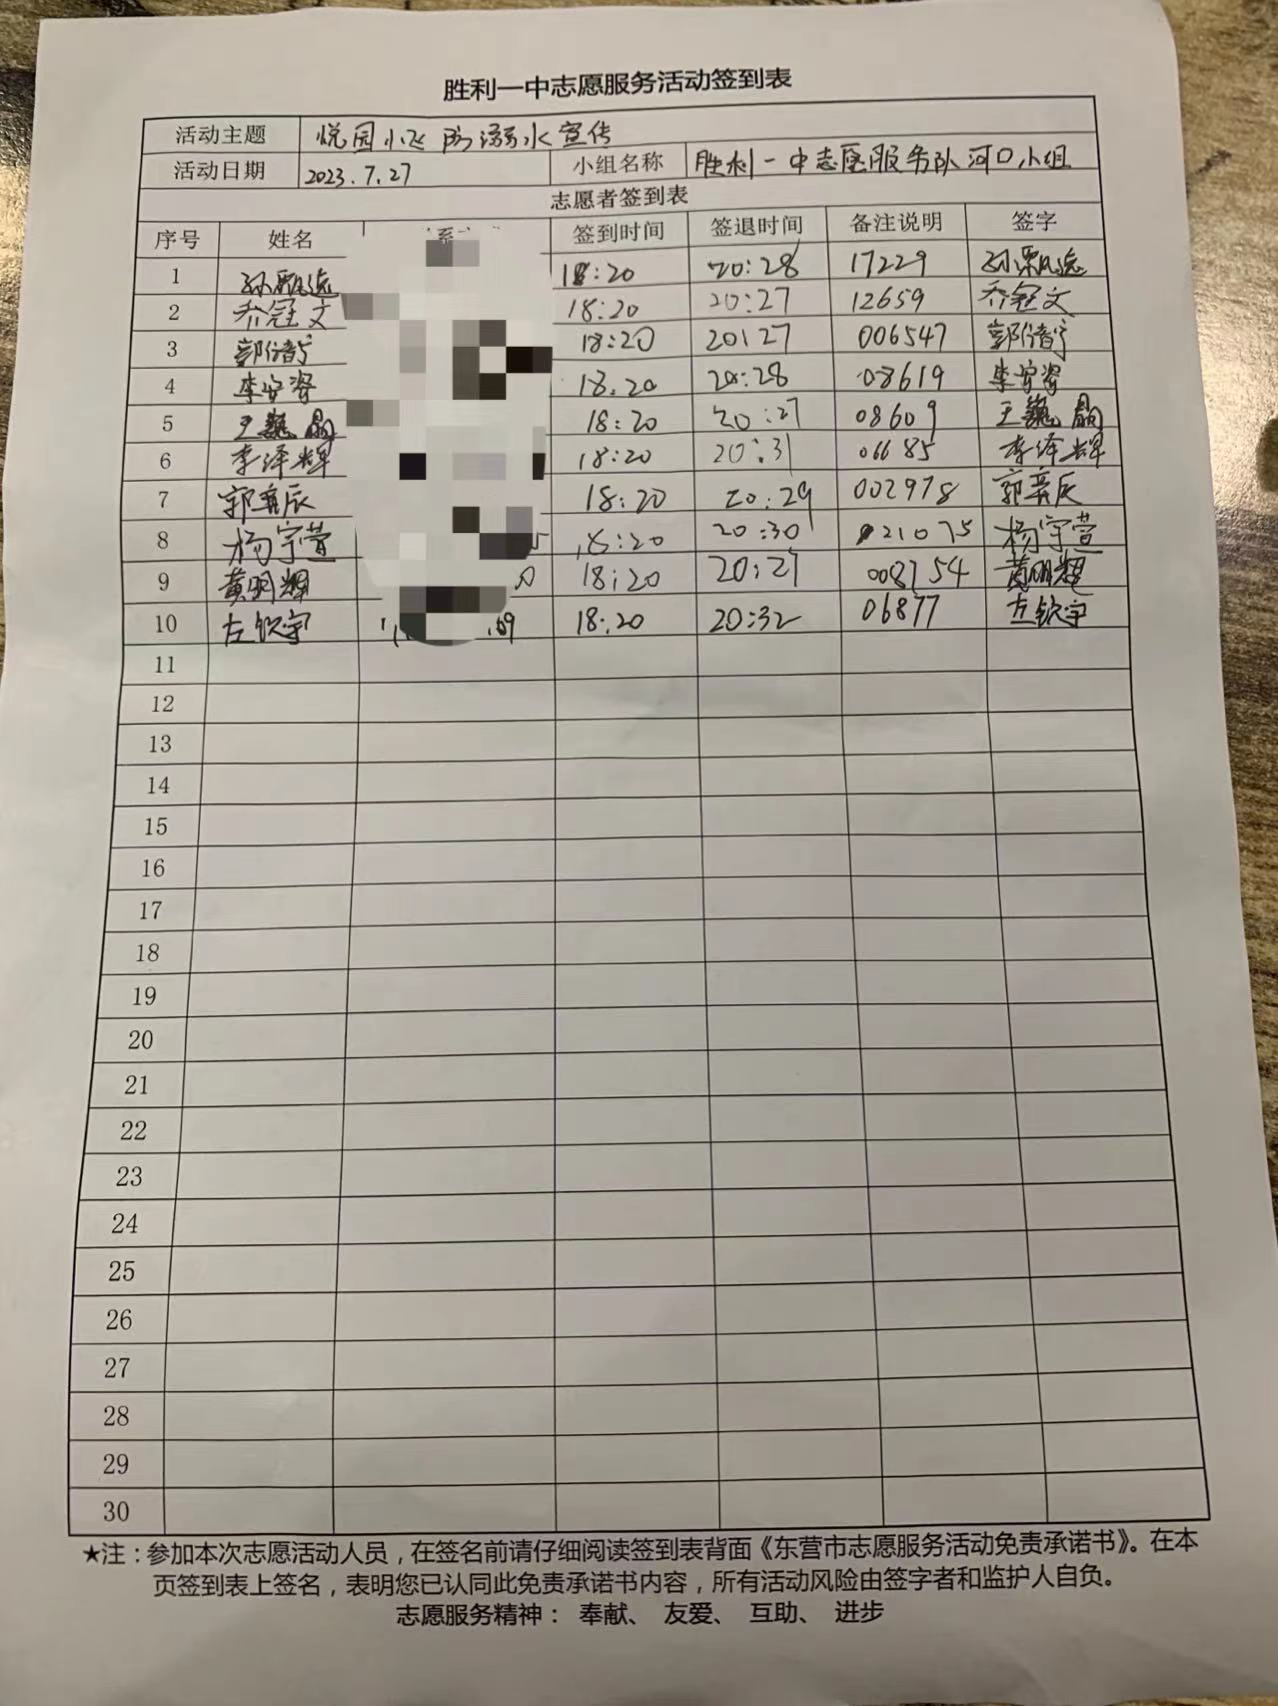 胜利一中志愿服务活动签到表
活动主题 悦园小区防溺水宣传
活动日期 2023.7.27 小组名称 胜利一中志愿服务队河口小组
志愿者签到表
序号 姓名 签到时间 签退时间 备注说明 签字
1 孙飘逸 18:20 20:28 17229 孙飘逸
2 乔冠文 18:20 20:27 12659 乔冠文
3 18:20 20:27 006547
4 18:20 20:28 08619
5 王巍 18:20 20:27 08609 王巍
6 李泽辉 18:20 20:31 06685 李泽辉
7 郭奕辰 18:20 20:29 002978 郭奕辰
8 杨宇萱 18:20 20:30 021075 杨宇萱
9 黄明耀 18:20 008754 黄明耀
10 左钦宇 18:20 20:32 06877 左钦宇
11
12
13
14
15
16
17
18
19
20
21
22
23
24
25
26
27
28
29
30
★注：参加本次志愿活动人员，在签名前请仔细阅读签到表背面《东营市志愿服务活动免责承诺书》。在本
页签到表上签名，表明您已认同此免责承诺书内容，所有活动风险由签字者和监护人自负。
志愿服务精神： 奉献、 友爱、 互助、 进步